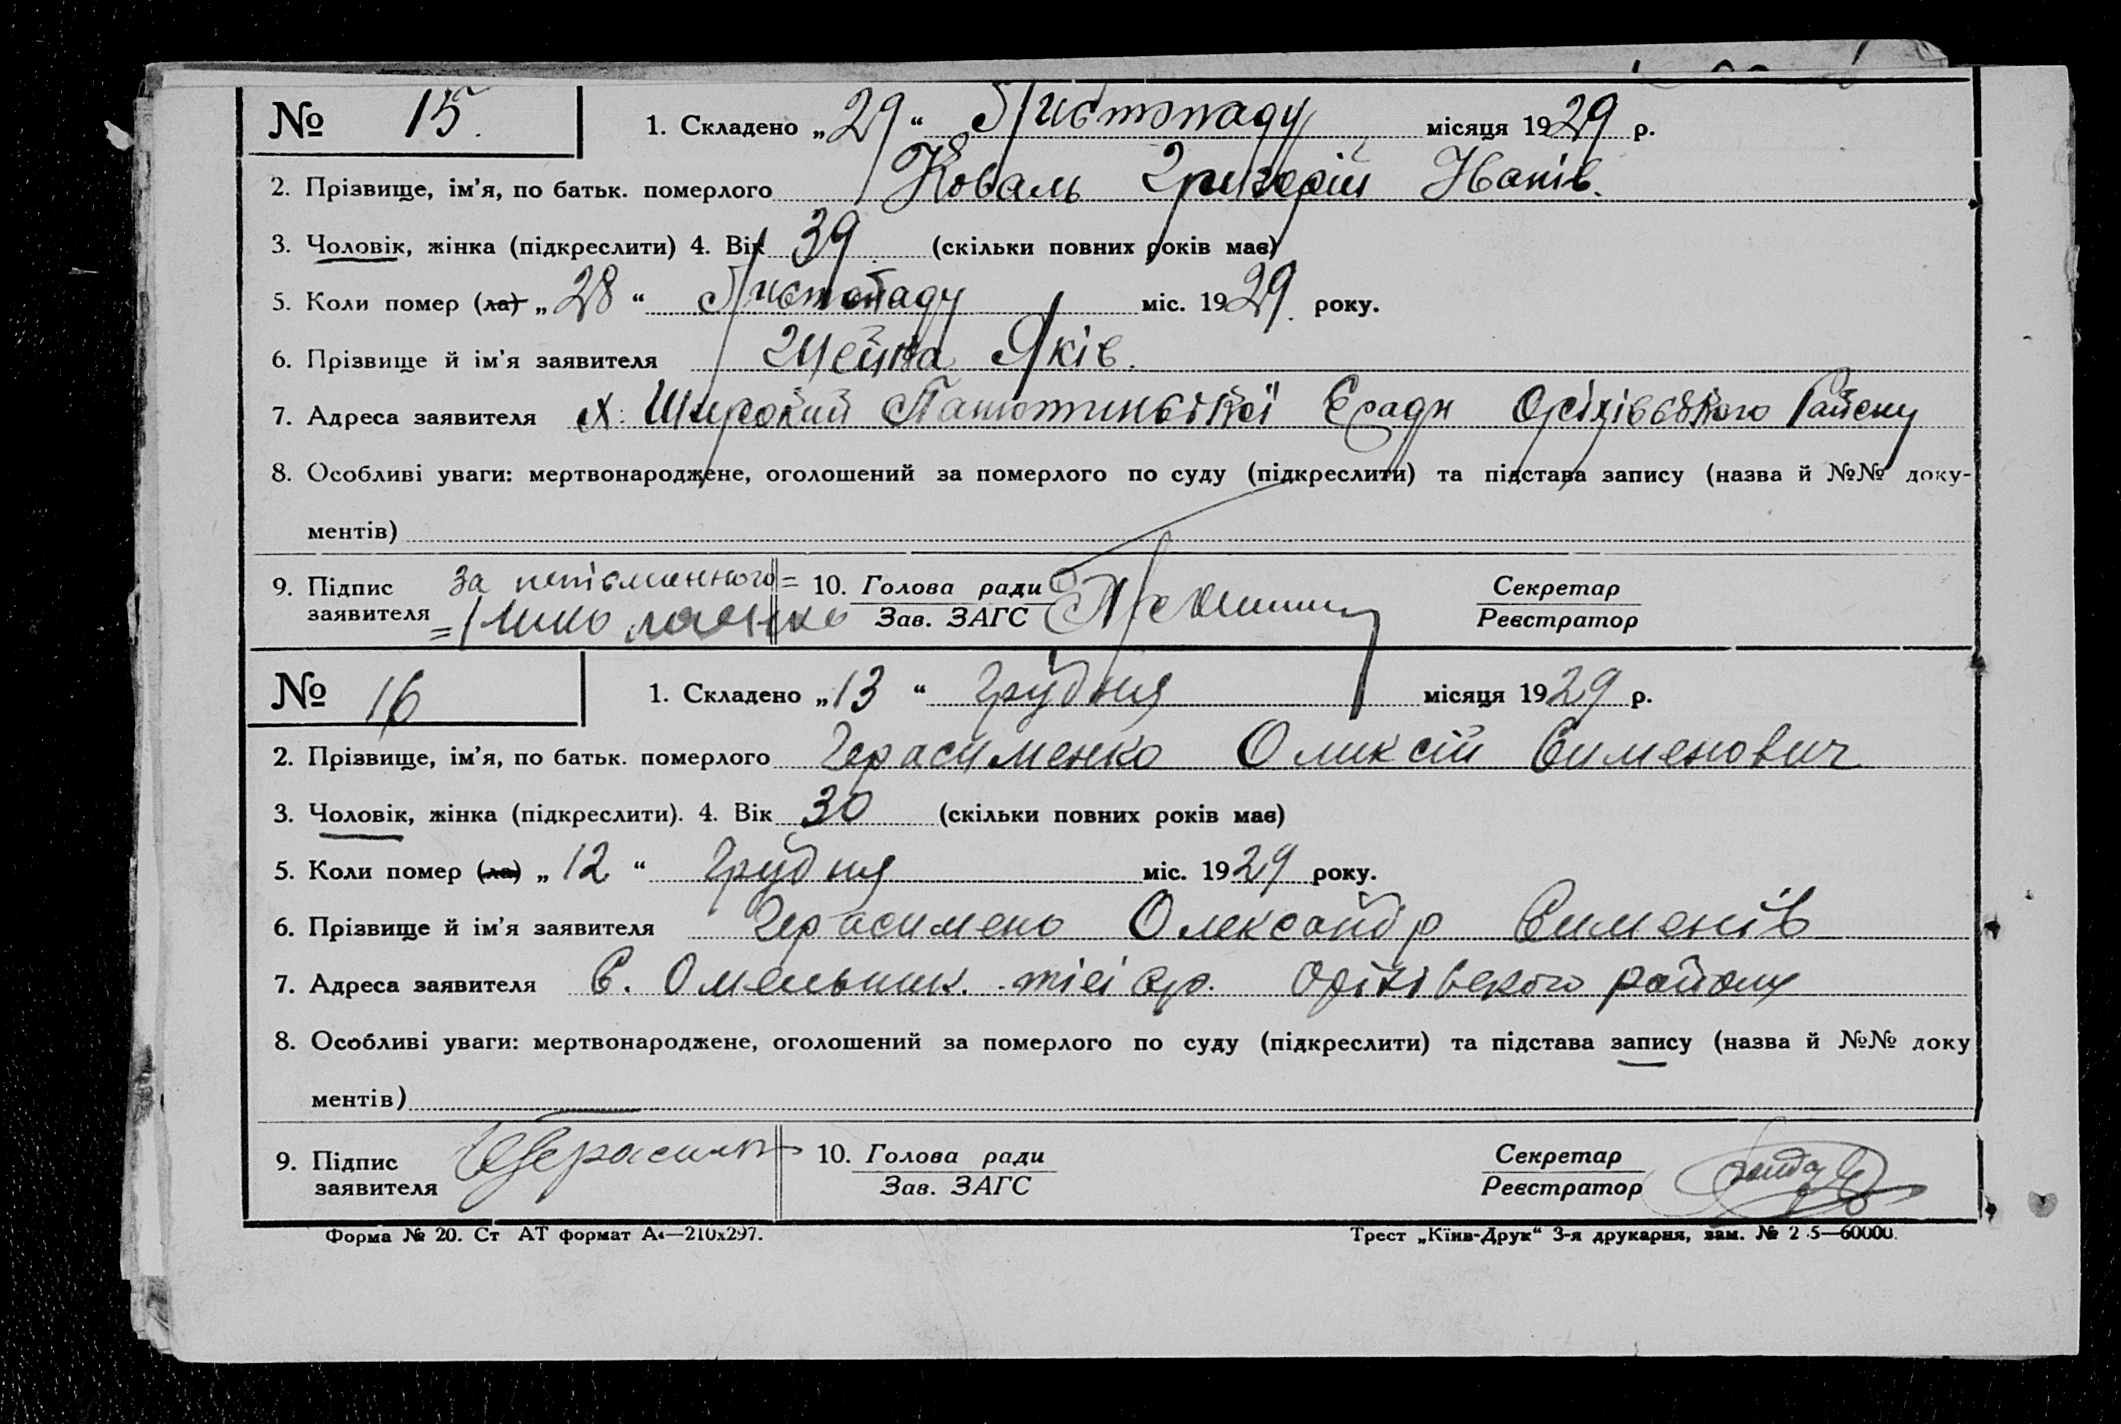 № 15. 1. Складено „29“ Листопаду місяця 1929 р.
2. Прізвище, ім’я, по батьк. померлого Коваль Григорій Іванів.
3. Чоловік, жінка (підкреслити) 4. Вік 39 (скільки повних років має)
5. Коли помер (ла) „28“ Листопаду міс. 1929. року.
6. Прізвище й ім’я заявителя Яків.
7. Адреса заявителя х. Широкий Оріхівського Району
8. Особливі уваги: мертвонароджене, оголошений за померлого по суду (підкреслити) та підстава запису (назва й №№ доку-
ментів)
9. Підпис за неписьменного= 10. Голова ради Секретар
заявителя = Зав. ЗАГС Реєстратор
№ 16 1. Складено „13“ грудня місяця 1929 р.
2. Прізвище, ім’я, по батьк. померлого Герасименко Оликсій Сименович
3. Чоловік, жінка (підкреслити). 4. Вік 30 (скільки повних років має)
5. Коли помер (ла) „12“ грудня міс. 1929 року.
6. Прізвище й ім’я заявителя Герасимено Олександр Сименів
7. Адреса заявителя С. Омельник. Оріхівского району
8. Особливі уваги: мертвонароджене, оголошений за померлого по суду (підкреслити) та підстава запису (назва й №№ доку
ментів)
9. Підпис 10. Голова ради Секретар
заявителя Зав. ЗАГС Реєстратор
Форма № 20. Ст АТ формат А4—210х297. Трест „Київ-Друк“ 3-я друкарня, зам. № 2 5—60000.